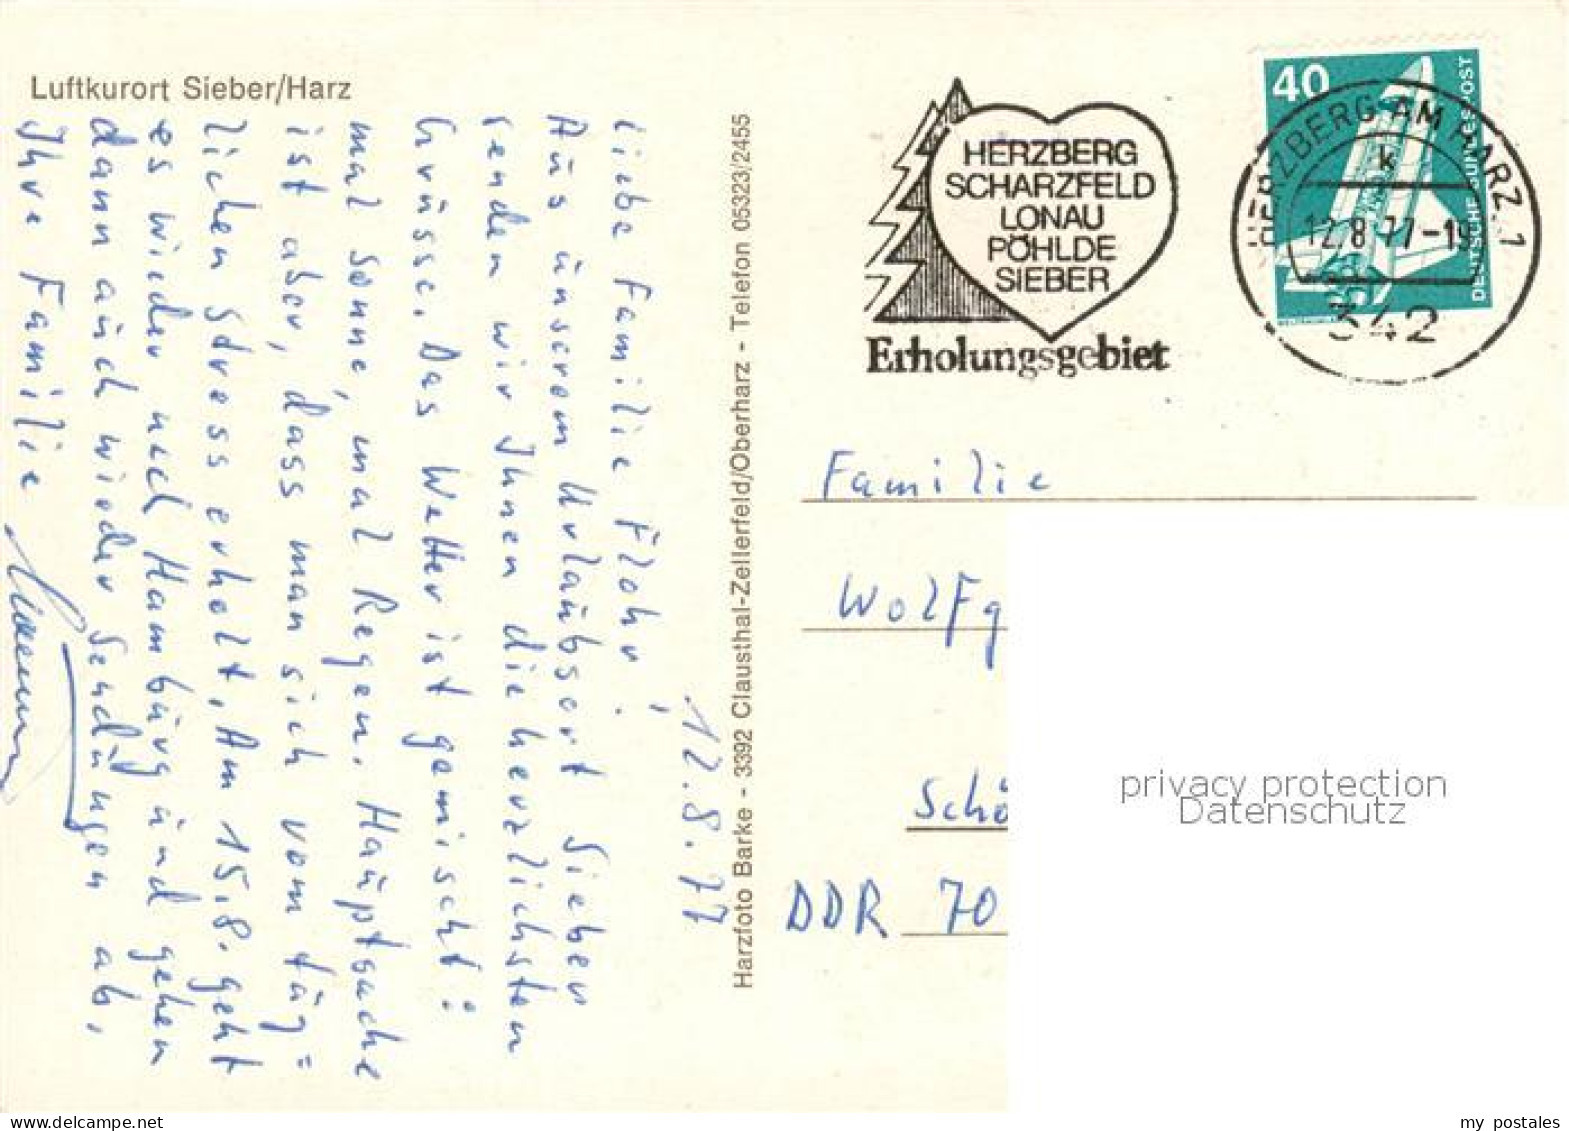 Luftkurort Sieber/Harz
12.8.77
Liebe Familie Flohr!
Aus unserem Urlaubsort Sieber
senden wir Ihnen die herzlichsten
Grüsse. Das Wetter ist gemischt:
mal Sonne, mal Regen. Hauptsache
ist aber, dass man sich vom täg=
lichen Stress erholt. Am 15.8. geht
es wieder nach Hamburg und gehen
dann auch wieder Sendungen ab,
Ihre Familie
Harzfoto Barke - 3392 Clausthal-Zellerfeld/Oberharz - Telefon 05323/2455
HERZBERG
SCHARZFELD
LONAU
PÖHLDE
SIEBER
Erholungsgebiet
40
DEUTSCHE BUNDESPOST
HERZBERG AM HARZ 1
k
12.8.77-19
342
Familie
Wolfg
Schö
DDR 70
privacy protection
Datenschutz
delcampe.net
my_postales